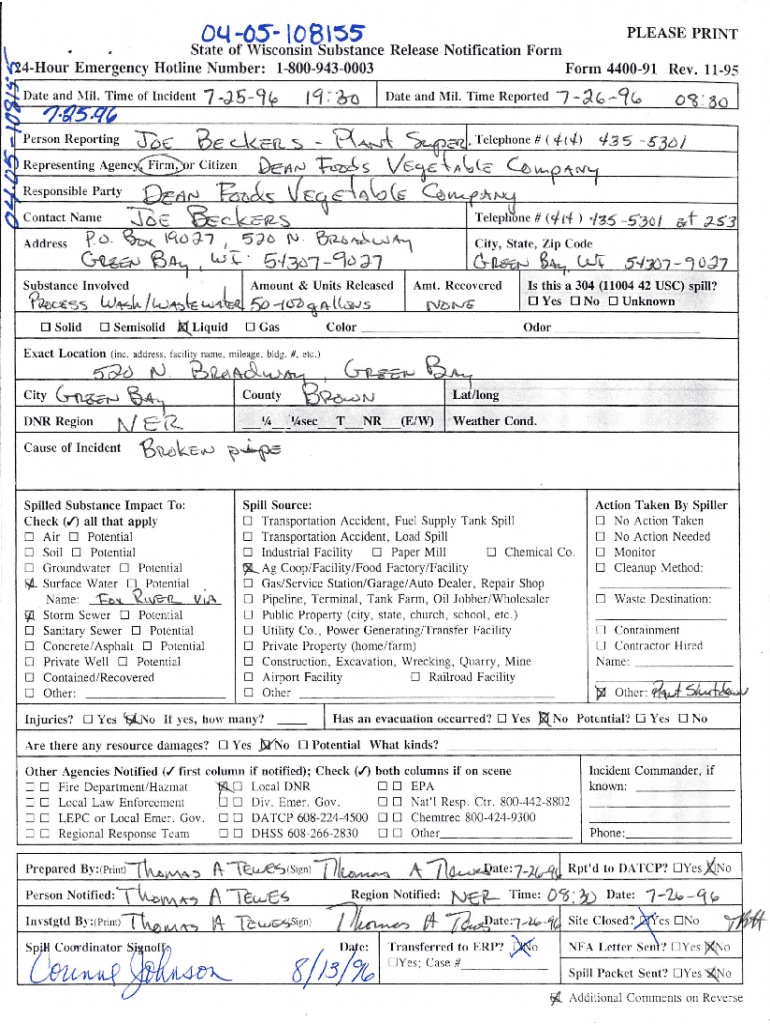 04-05-108155
PLEASE PRINT
State of Wisconsin Substance Release Notification Form
24-Hour Emergency Hotline Number: 1-800-943-0003 Form 4400-91 Rev. 11-95
04-05-108155
Date and Mil. Time of Incident 7-25-96 19:30 Date and Mil. Time Reported 7-26-96 08:30
7-25-96
Person Reporting JOE BECKERS - PLANT SUPER. Telephone # (414) 435-5301
Representing Agency, Firm, or Citizen DEAN FOODS VEGETABLE COMPANY
Responsible Party DEAN FOODS VEGETABLE COMPANY
Contact Name JOE BECKERS Telephone # (414) 435-5301 at 253
Address P.O. BOX 19027, 520 N. BROADWAY City, State, Zip Code
GREEN BAY, WI. 54307-9027 GREEN BAY, WI 54307-9027
Substance Involved Amount & Units Released Amt. Recovered Is this a 304 (11004 42 USC) spill?
PROCESS WASH/WASTEWATER 50-100 gALLONS NONE ☐ Yes ☐ No ☐ Unknown
☐ Solid ☐ Semisolid ☒ Liquid ☐ Gas Color Odor
Exact Location (inc. address, facility name, mileage, bldg. #, etc.)
520 N. BROADWAY, GREEN BAY
City GREEN BAY County BROWN Lat/long
DNR Region NER ¼ ¼sec T NR (E/W) Weather Cond.
Cause of Incident BROKEN pipe
Spilled Substance Impact To: Spill Source: Action Taken By Spiller
Check (✓) all that apply ☐ Transportation Accident, Fuel Supply Tank Spill ☐ No Action Taken
☐ Air ☐ Potential ☐ Transportation Accident, Load Spill ☐ No Action Needed
☐ Soil ☐ Potential ☐ Industrial Facility ☐ Paper Mill ☐ Chemical Co. ☐ Monitor
☐ Groundwater ☐ Potential ☒ Ag Coop/Facility/Food Factory/Facility ☐ Cleanup Method:
☒ Surface Water ☐ Potential ☐ Gas/Service Station/Garage/Auto Dealer, Repair Shop
Name: FOX RIVER VIA ☐ Pipeline, Terminal, Tank Farm, Oil Jobber/Wholesaler ☐ Waste Destination:
☒ Storm Sewer ☐ Potential ☐ Public Property (city, state, church, school, etc.)
☐ Sanitary Sewer ☐ Potential ☐ Utility Co., Power Generating/Transfer Facility ☐ Containment
☐ Concrete/Asphalt ☐ Potential ☐ Private Property (home/farm) ☐ Contractor Hired
☐ Private Well ☐ Potential ☐ Construction, Excavation, Wrecking, Quarry, Mine Name:
☐ Contained/Recovered ☐ Airport Facility ☐ Railroad Facility
☐ Other: ☐ Other ☒ Other: Plant Shutdown
Injuries? ☐ Yes ☒ No If yes, how many? Has an evacuation occurred? ☐ Yes ☒ No Potential? ☐ Yes ☐ No
Are there any resource damages? ☐ Yes ☒ No ☐ Potential What kinds?
Other Agencies Notified (✓ first column if notified); Check (✓) both columns if on scene Incident Commander, if
☐ ☐ Fire Department/Hazmat ☒ ☐ Local DNR ☐ ☐ EPA known:
☐ ☐ Local Law Enforcement ☐ ☐ Div. Emer. Gov. ☐ ☐ Nat'l Resp. Ctr. 800-442-8802
☐ ☐ LEPC or Local Emer. Gov. ☐ ☐ DATCP 608-224-4500 ☐ ☐ Chemtrec 800-424-9300
☐ ☐ Regional Response Team ☐ ☐ DHSS 608-266-2830 ☐ ☐ Other Phone:
Prepared By:(Print) Thomas A TEWES (Sign) Thomas A Tewes Date: 7-26-96 Rpt'd to DATCP? ☐Yes ☒No
Person Notified: Thomas A TEWES Region Notified: NER Time: 08:30 Date: 7-26-96
Invstgtd By:(Print) Thomas A TEWES (Sign) Thomas A Tewes Date: 7-26-96 Site Closed? ☒Yes ☐No
Spill Coordinator Signoff: Date: Transferred to ERP? ☒No NFA Letter Sent? ☐Yes ☒No
Corinne Johnson 8/13/96 ☐Yes; Case # Spill Packet Sent? ☐Yes ☒No
☒ Additional Comments on Reverse